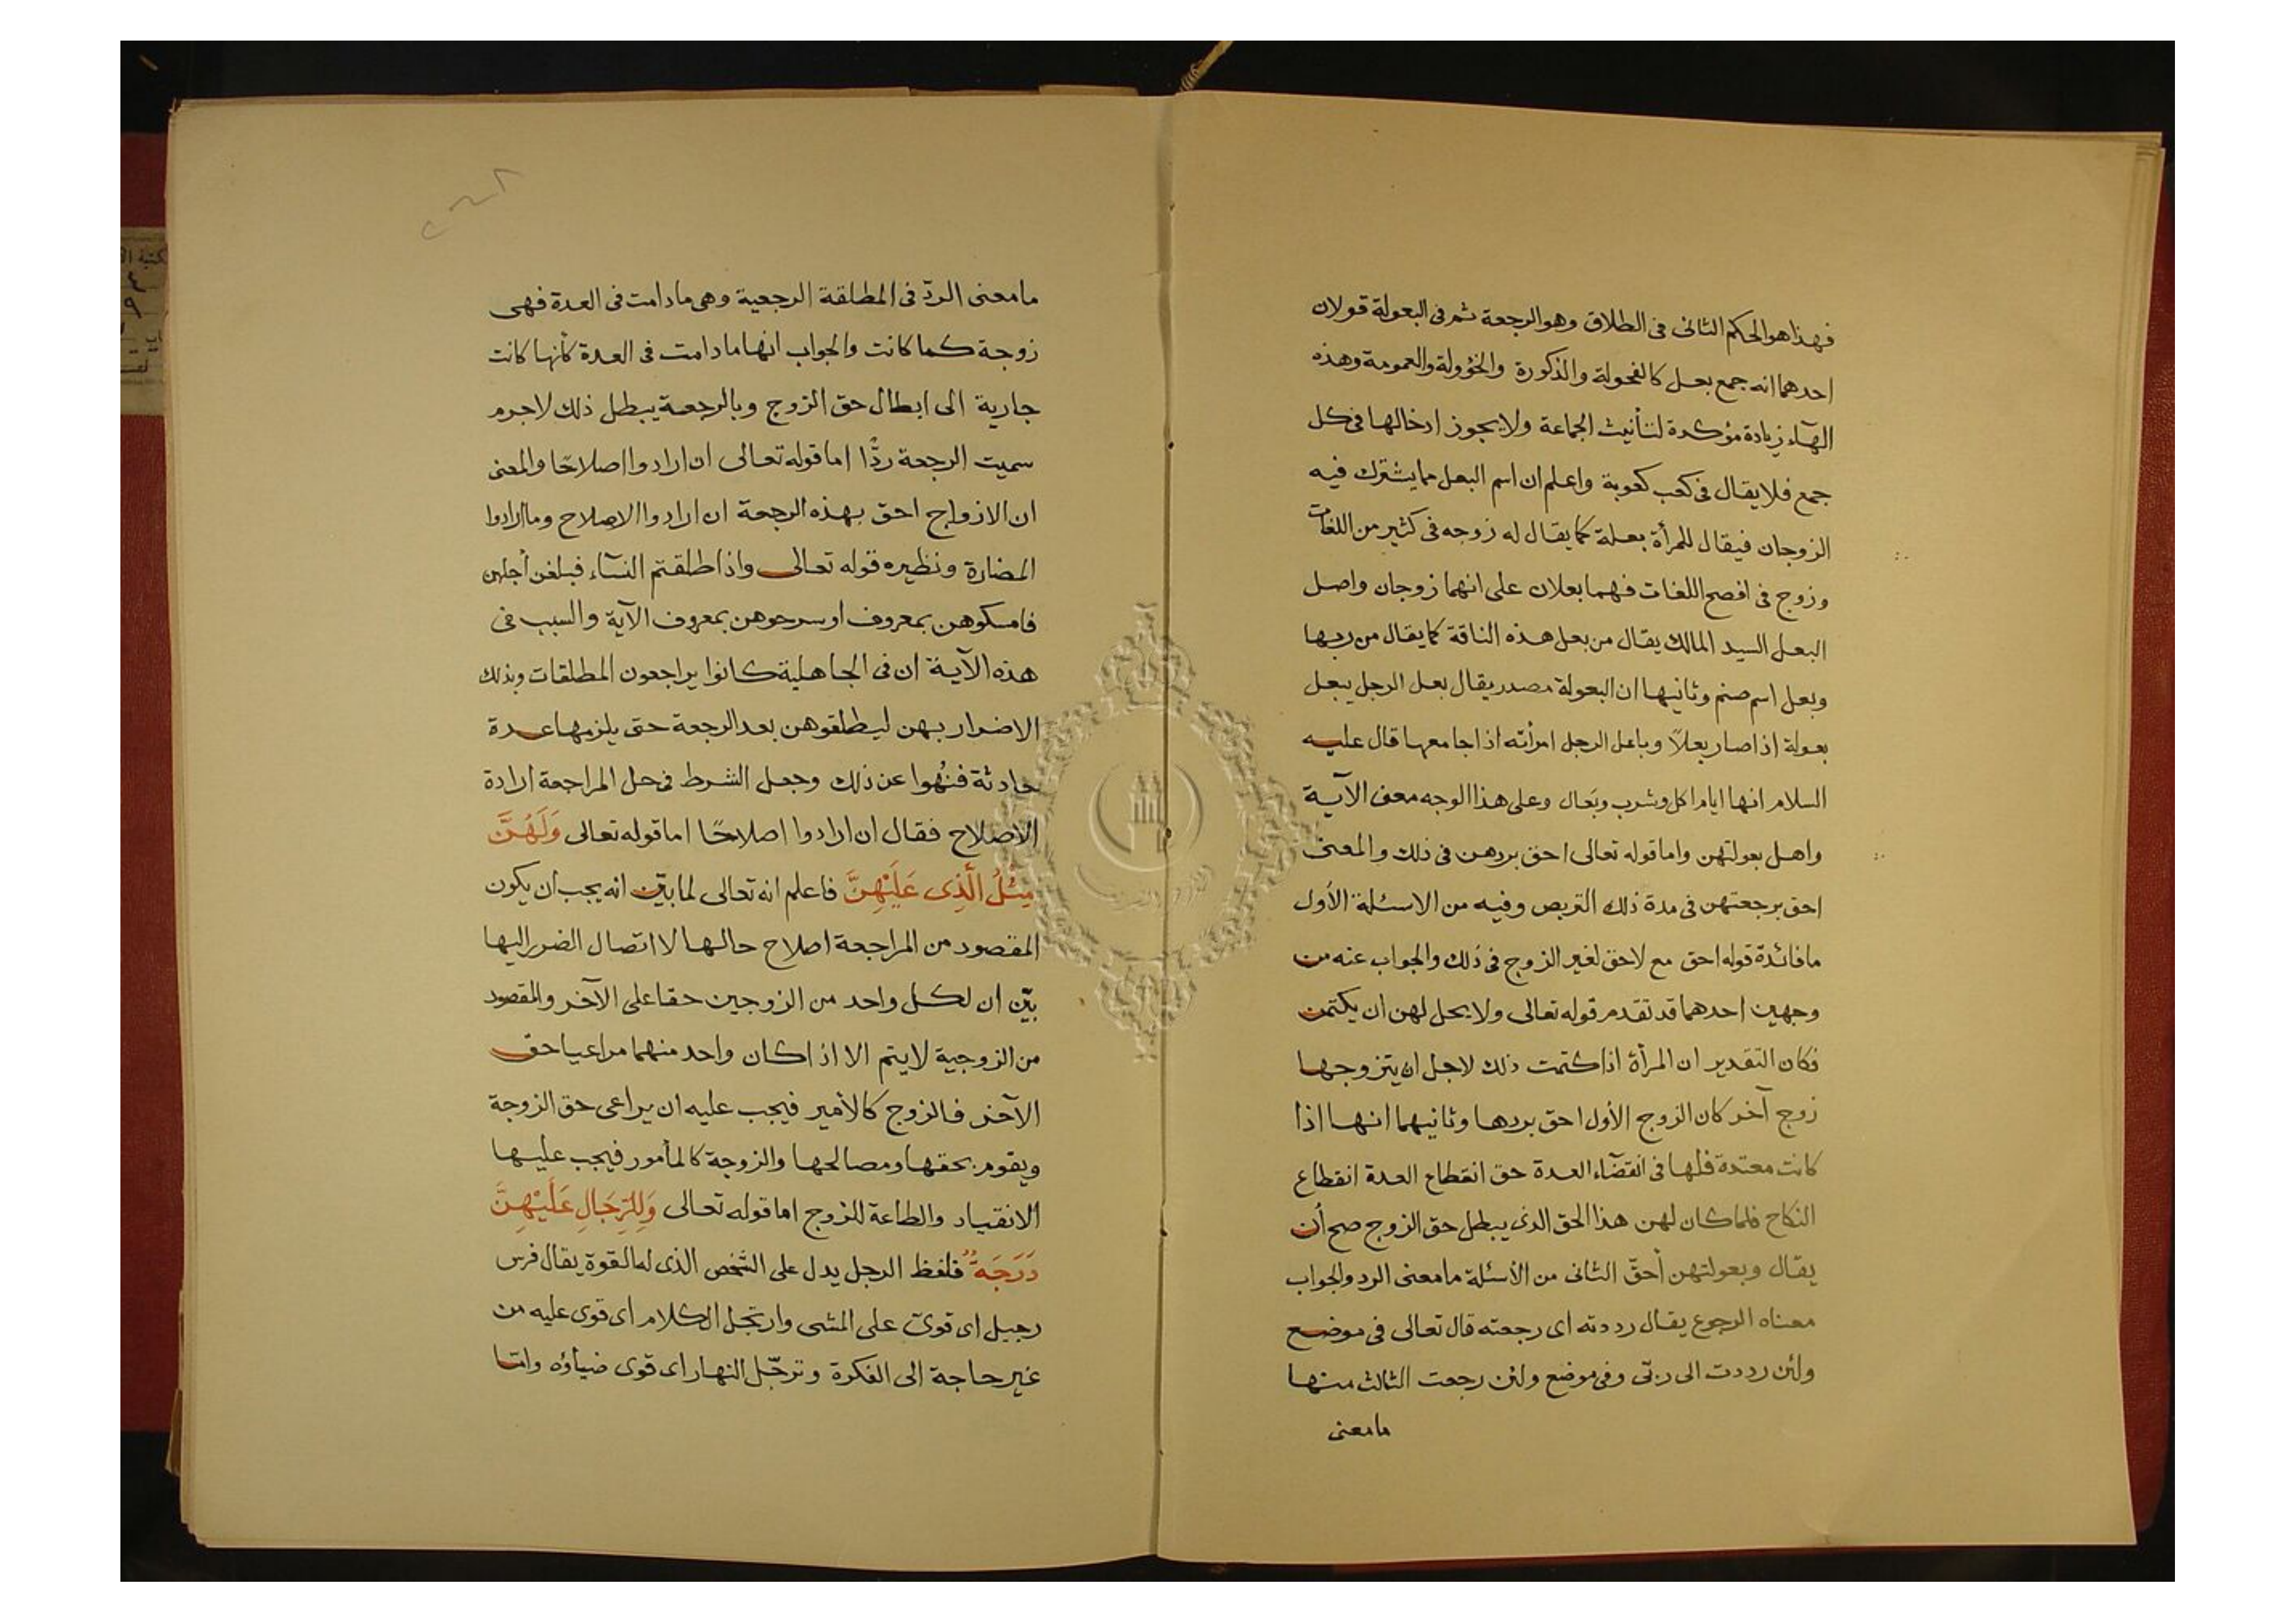 فهذا هو الحكم الثانى فى الطلاق وهو الرجعة ثم فى البعولة قولان
احدهما انه جمع بعل كالفحولة والذكورة والخؤولة والعمومة وهذه
الهآء زيادة مؤكدة لتأنيث الجماعة ولا يجوز ادخالها فى كل
جمع فلا يقال فى كعب كعوبة واعلم ان اسم البعل مما يشترك فيه
الزوجان فيقال للمرأة بعلة كما يقال له زوجه فى كثير من اللغات
وزوج فى افصح اللغات فهما بعلان على انهما زوجان واصل
البعل السيد المالك يقال من بعل هذه الناقة كما يقال من ربها
وبعل اسم صنم وثانيها ان البعولة مصدر يقال بعل الرجل يبعل
بعولة اذا صار بعلاً وباعل الرجل امرأته اذا جامعها قال عليه
السلام انها ايام اكل وشرب وبعال وعلى هذا الوجه معنى الآية
واهل بعولتهن واما قوله تعالى احق بردهن فى ذلك والمعنى
احق برجعتهن فى مدة ذلك التربص وفيه من الاسئلة الأول
ما فائدة قوله احق مع لا حق لغير الزوج فى ذلك والجواب عنه من
وجهين احدهما قد تقدم قوله تعالى ولا يحل لهن ان يكتمن
فكان التقدير ان المرأة اذا كتمت ذلك لاجل ان يتزوجها
زوج آخر كان الزوج الأول احق بردها وثانيهما انها اذا
كانت معتدة فلها فى انقضآء العدة حق انقطاع العدة انقطاع
النكاح فلما كان لهن هذا الحق الذى يبطل حق الزوج صح أن
يقال وبعولتهن أحقّ الثانى من الأسئلة ما معنى الرد والجواب
معناه الرجوع يقال رددته اى رجعته قال تعالى فى موضع
ولئن رددت الى ربّى وفى موضع ولئن رجعت الثالث منها
ما معنى
ما معنى الردّ فى المطلقة الرجعية وهى ما دامت فى العدة فهى
زوجة كما كانت والجواب انها ما دامت فى العدة كأنها كانت
جارية الى ابطال حق الزوج وبالرجعة يبطل ذلك لا جرم
سميت الرجعة ردًّا اما قوله تعالى ان ارادوا اصلاحًا والمعنى
ان الازواج احق بهذه الرجعة ان ارادوا الاصلاح وما ارادوا
المضارة ونظيره قوله تعالى واذا طلقتم النسآء فبلغن أجلهن
فامسكوهن بمعروف او سرحوهن بمعروف الآية والسبب فى
هذه الآية ان فى الجاهلية كانوا يراجعون المطلقات وبذلك
الاضرار بهن ليطلقوهن بعد الرجعة حتى يلزمها عدة
حادثة فنُهوا عن ذلك وجعل الشرط فى حل المراجعة ارادة
الاصلاح فقال ان ارادوا اصلاحًا اما قوله تعالى وَلَهُنَّ
مِثْلُ الَّذِى عَلَيْهِنَّ فاعلم انه تعالى لما بيّن انه يجب ان يكون
المقصود من المراجعة اصلاح حالها لا اتصال الضرر اليها
بيّن ان لكل واحد من الزوجين حقا على الآخر والمقصود
من الزوجية لا يتم الا اذا كان واحد منهما مراعيا حق
الآخر فالزوج كالأمير فيجب عليه ان يراعى حق الزوجة
ويقوم بحقها ومصالحها والزوجة كالمأمور فيجب عليها
الانقياد والطاعة للزوج اما قوله تعالى وَلِلرِّجَالِ عَلَيْهِنَّ
دَرَجَةٌ فلفظ الرجل يدل على الشخص الذى له القوة يقال فرس
رجيل اى قوىّ على المشى وارتجل الكلام اى قوى عليه من
غير حاجة الى الفكرة وترجّل النهار اى قوى ضياؤه وامّا